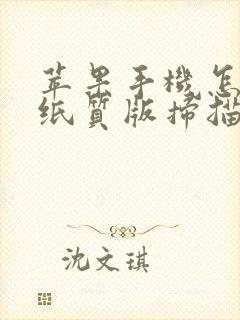 苹果手機怎
纸質版掃描
沈文琪